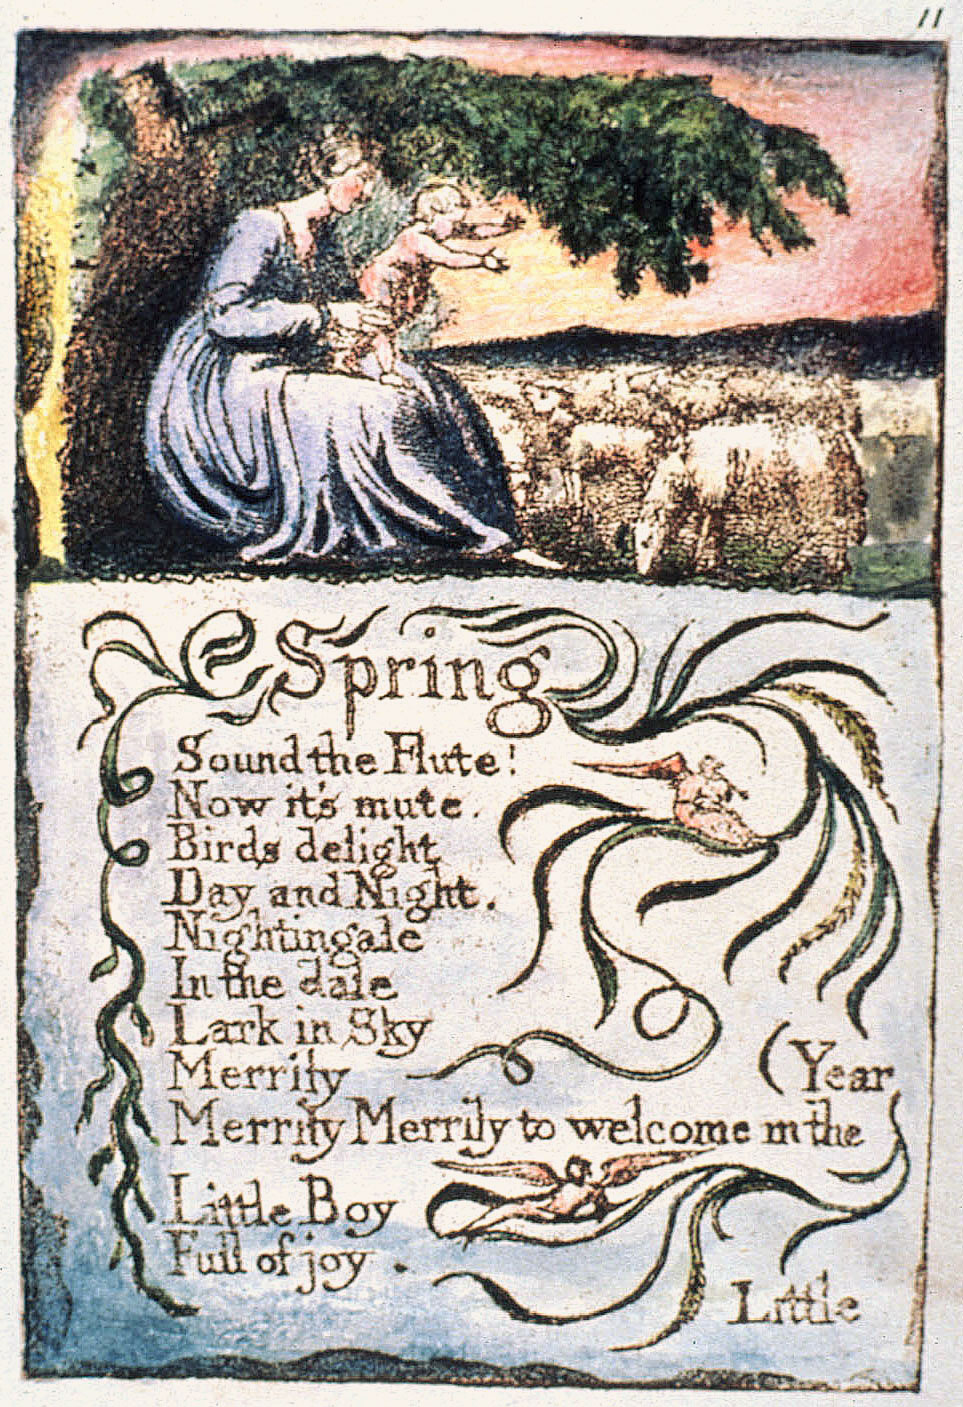 11
Spring
Sound the Flute!
Now it's mute.
Birds delight
Day and Night.
Nightingale
In the dale
Lark in Sky
Merrily
Merrily Merrily to welcome in the
(Year
Little Boy
Full of joy.
Little